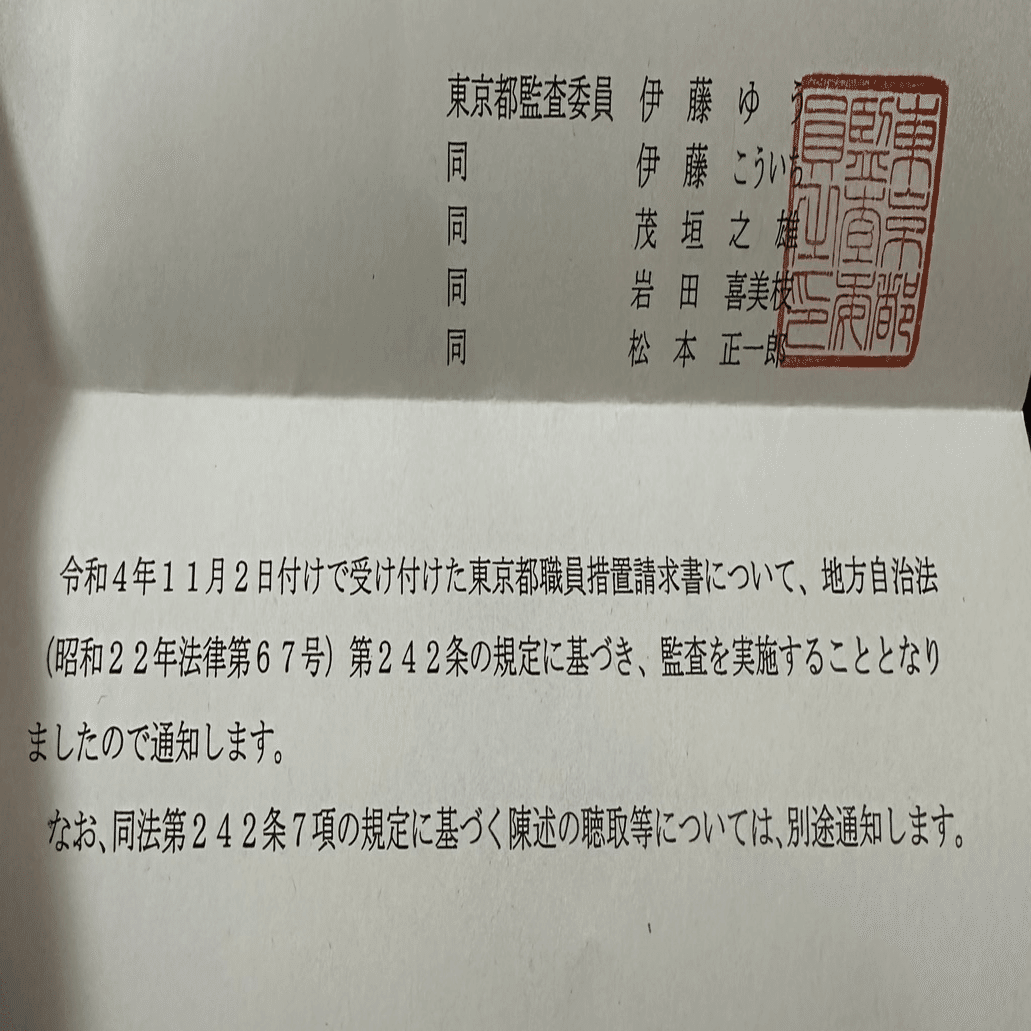 東京都監査委員 伊藤ゆう
同 伊藤こういち
同 茂垣之雄
同 岩田喜美枝
同 松本正一郎
東京都監査委員之印
令和４年１１月２日付けで受け付けた東京都職員措置請求書について、地方自治法
（昭和２２年法律第６７号）第２４２条の規定に基づき、監査を実施することとなり
ましたので通知します。
なお、同法第２４２条７項の規定に基づく陳述の聴取等については、別途通知します。